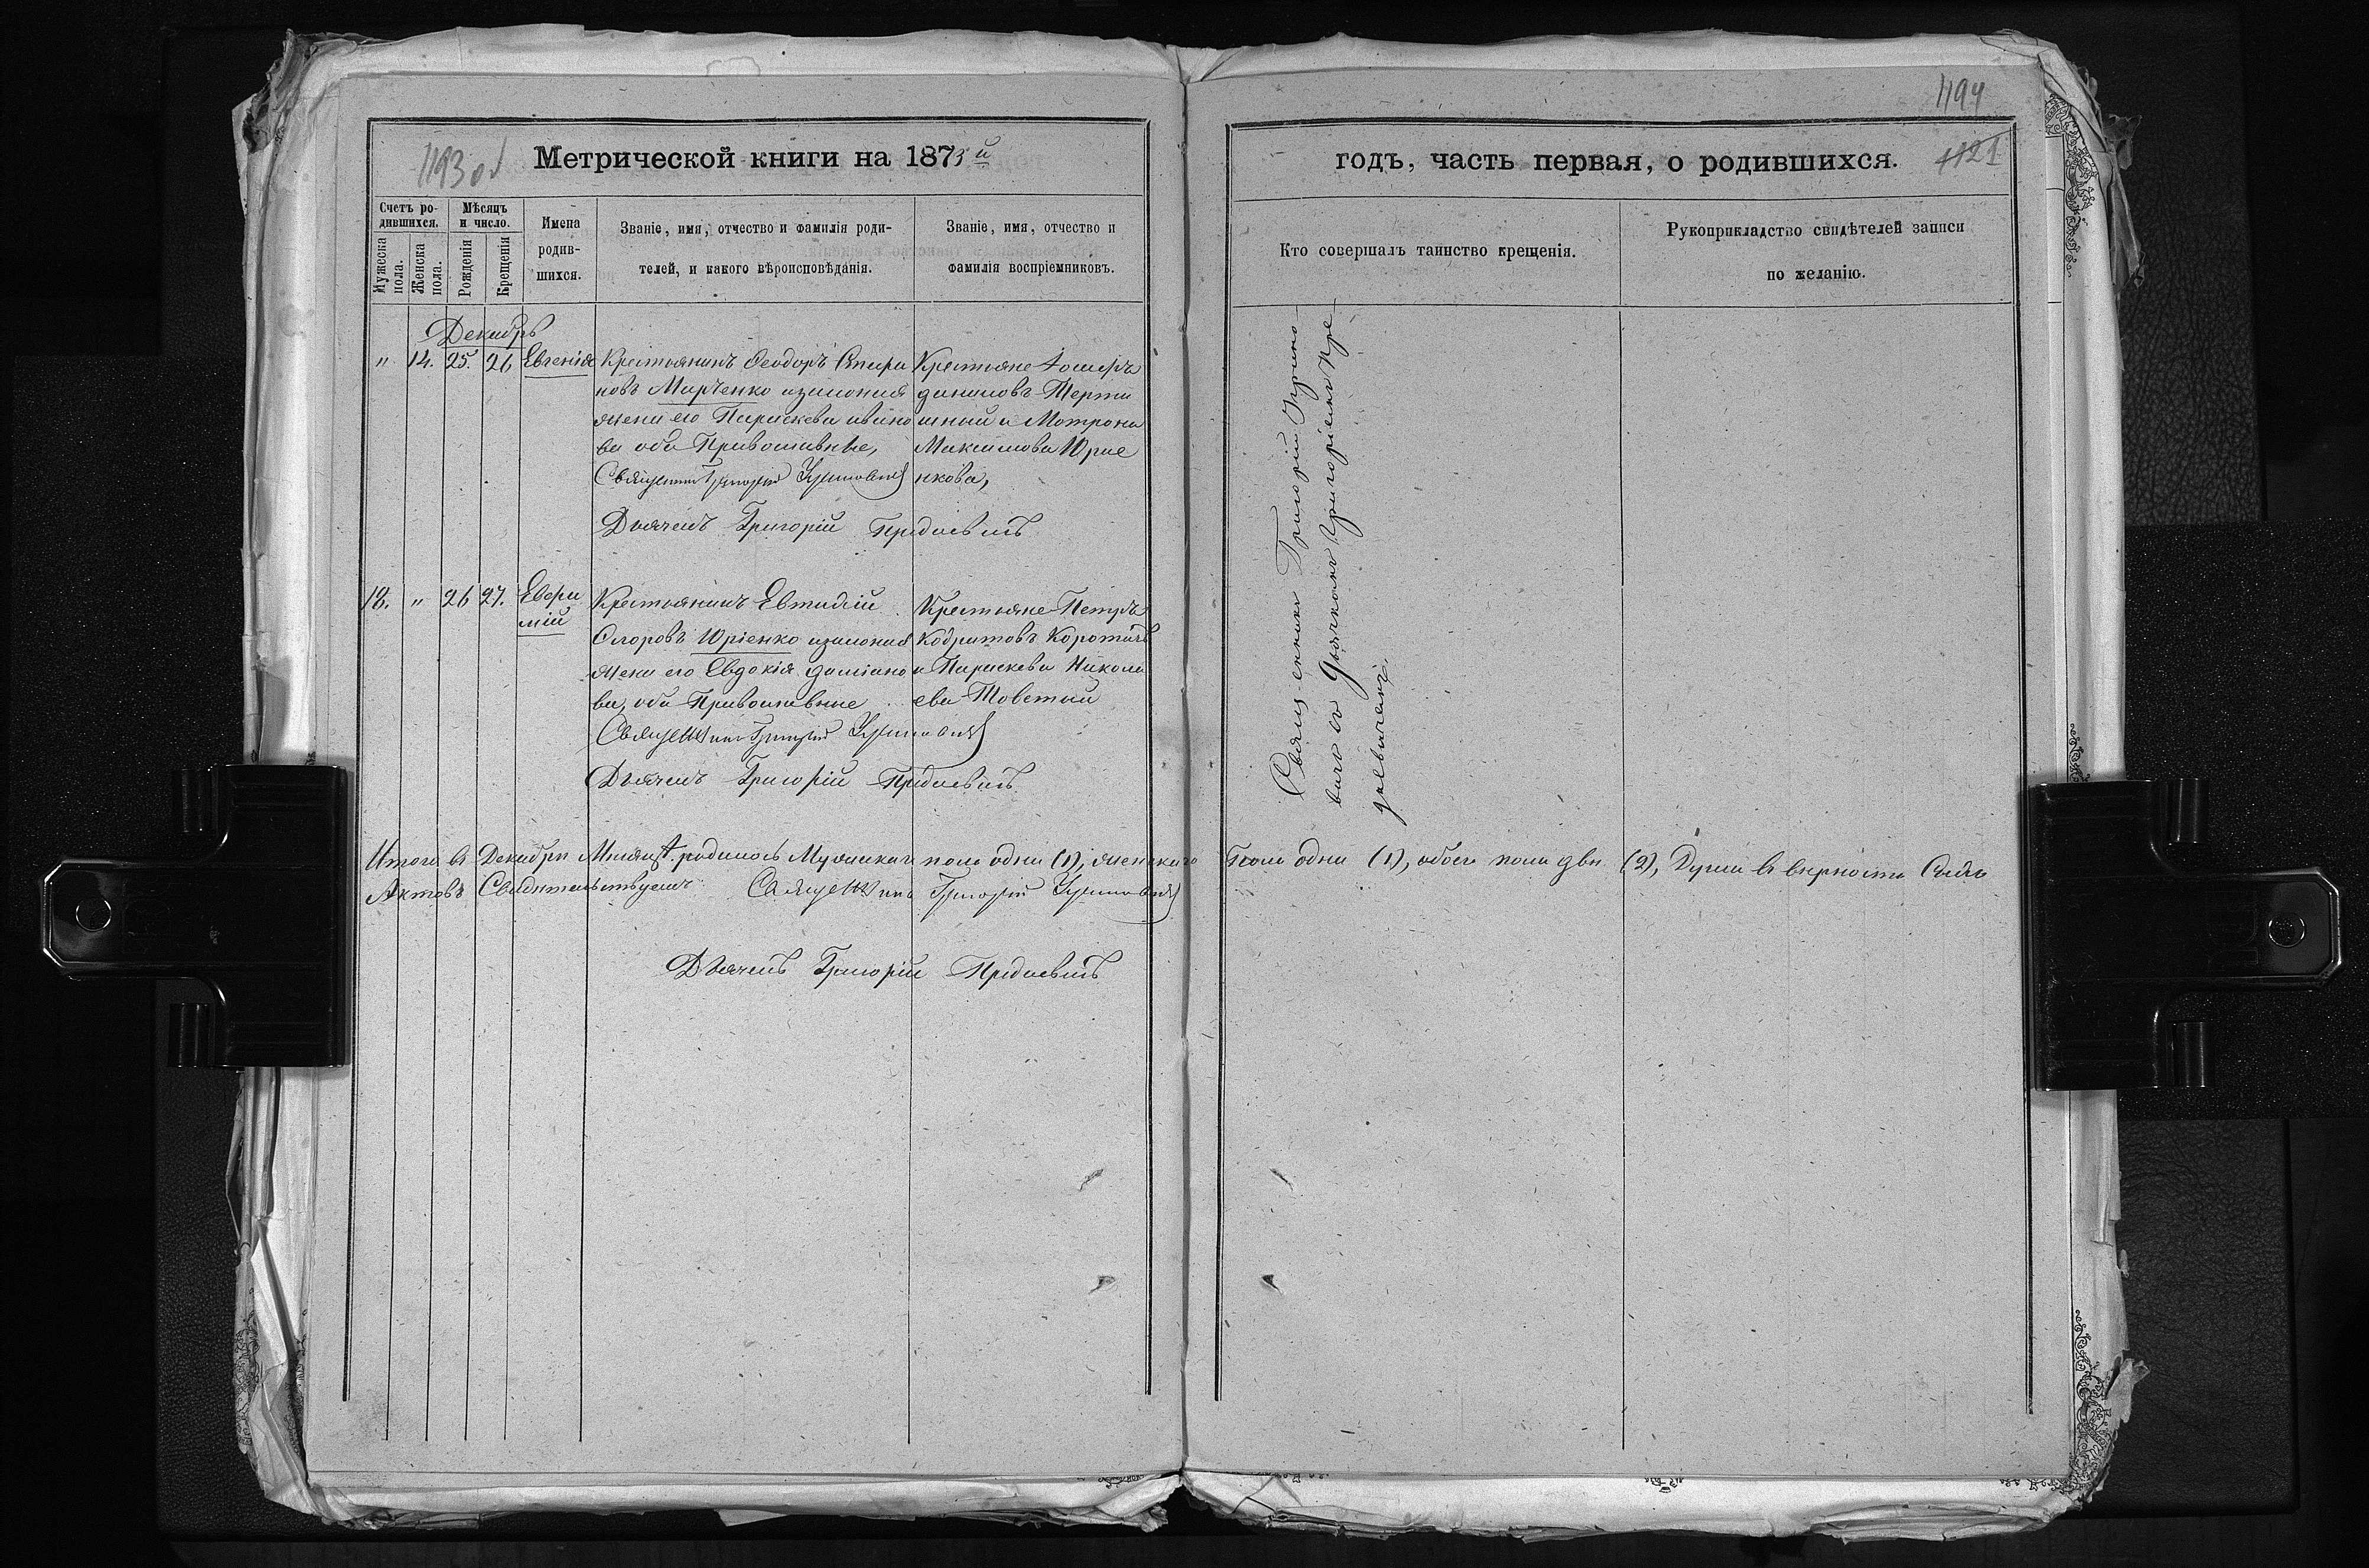 1193 об
Метрической книги на 1873й
Счетъ родившихся.
Мужеска пола.
Женска пола.
Мѣсяцъ и число.
Рожденія
Крещенія
Имена родившихся.
Званіе, имя, отчество и фамилія родителей, и какого вѣроисповѣданія.
Званіе, имя, отчество и фамилія воспріемниковъ.
Декабрь
" 14. 25. 26 Евгенія
Крестьянинъ Феодоръ Спири
новъ Марченко изаконная
жена его Параскева ивано
ва оба Православные,
Священникъ Григорій
Дьячекъ Григорій
Крестьяне
даниловъ
и Мотрона
Максимова Юрие
нкова,
18. " 26 27. Евфи
мій
Крестьянинъ Евтихій
Юріенко изаконная
жена его Евдокія даміано
ва, оба Православные
Священникъ Григорій
Дьячекъ Григорій
Крестьяне Петръ
Кодратовъ
и Параскева Никола
ева
Итого въ Декабрѣ Мѣсяцѣ родилось Мужескаго пола одна (1), женскаго
Актовъ Свидѣтельствуемъ Священникъ Григорій
Дьячекъ Григорій
1194
1121
годъ, часть первая, о родившихся.
Кто совершалъ таинство крещенія.
Рукоприкладство свидѣтелей записи по желанію.
Священникъ Григорій
съ дьячкомъ Григоріемъ Пре
пола одна (1), обоего пола двѣ (2), Души въ вѣрности Сихъ